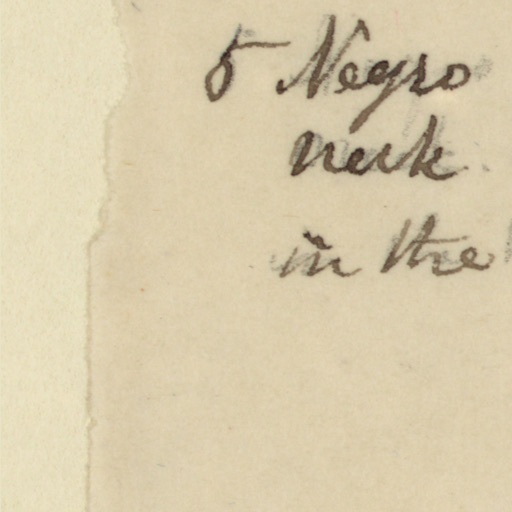 5 Negro
neck
in the